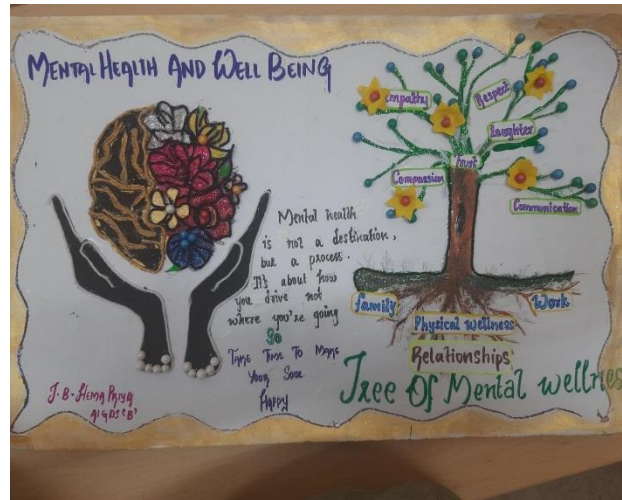 MENTAL HEALTH AND WELL BEING
Empathy
Respect
Laughter
Trust
Compassion
Communication
Mental health
is not a destination,
but a process.
It's about how
you drive not
where you're going
So
TAKE TIME TO MAKE
YOUR SOUL
HAPPY
family
Work
Physical wellness
Relationships
Tree Of Mental wellness
J.B-HEMA PRIYA